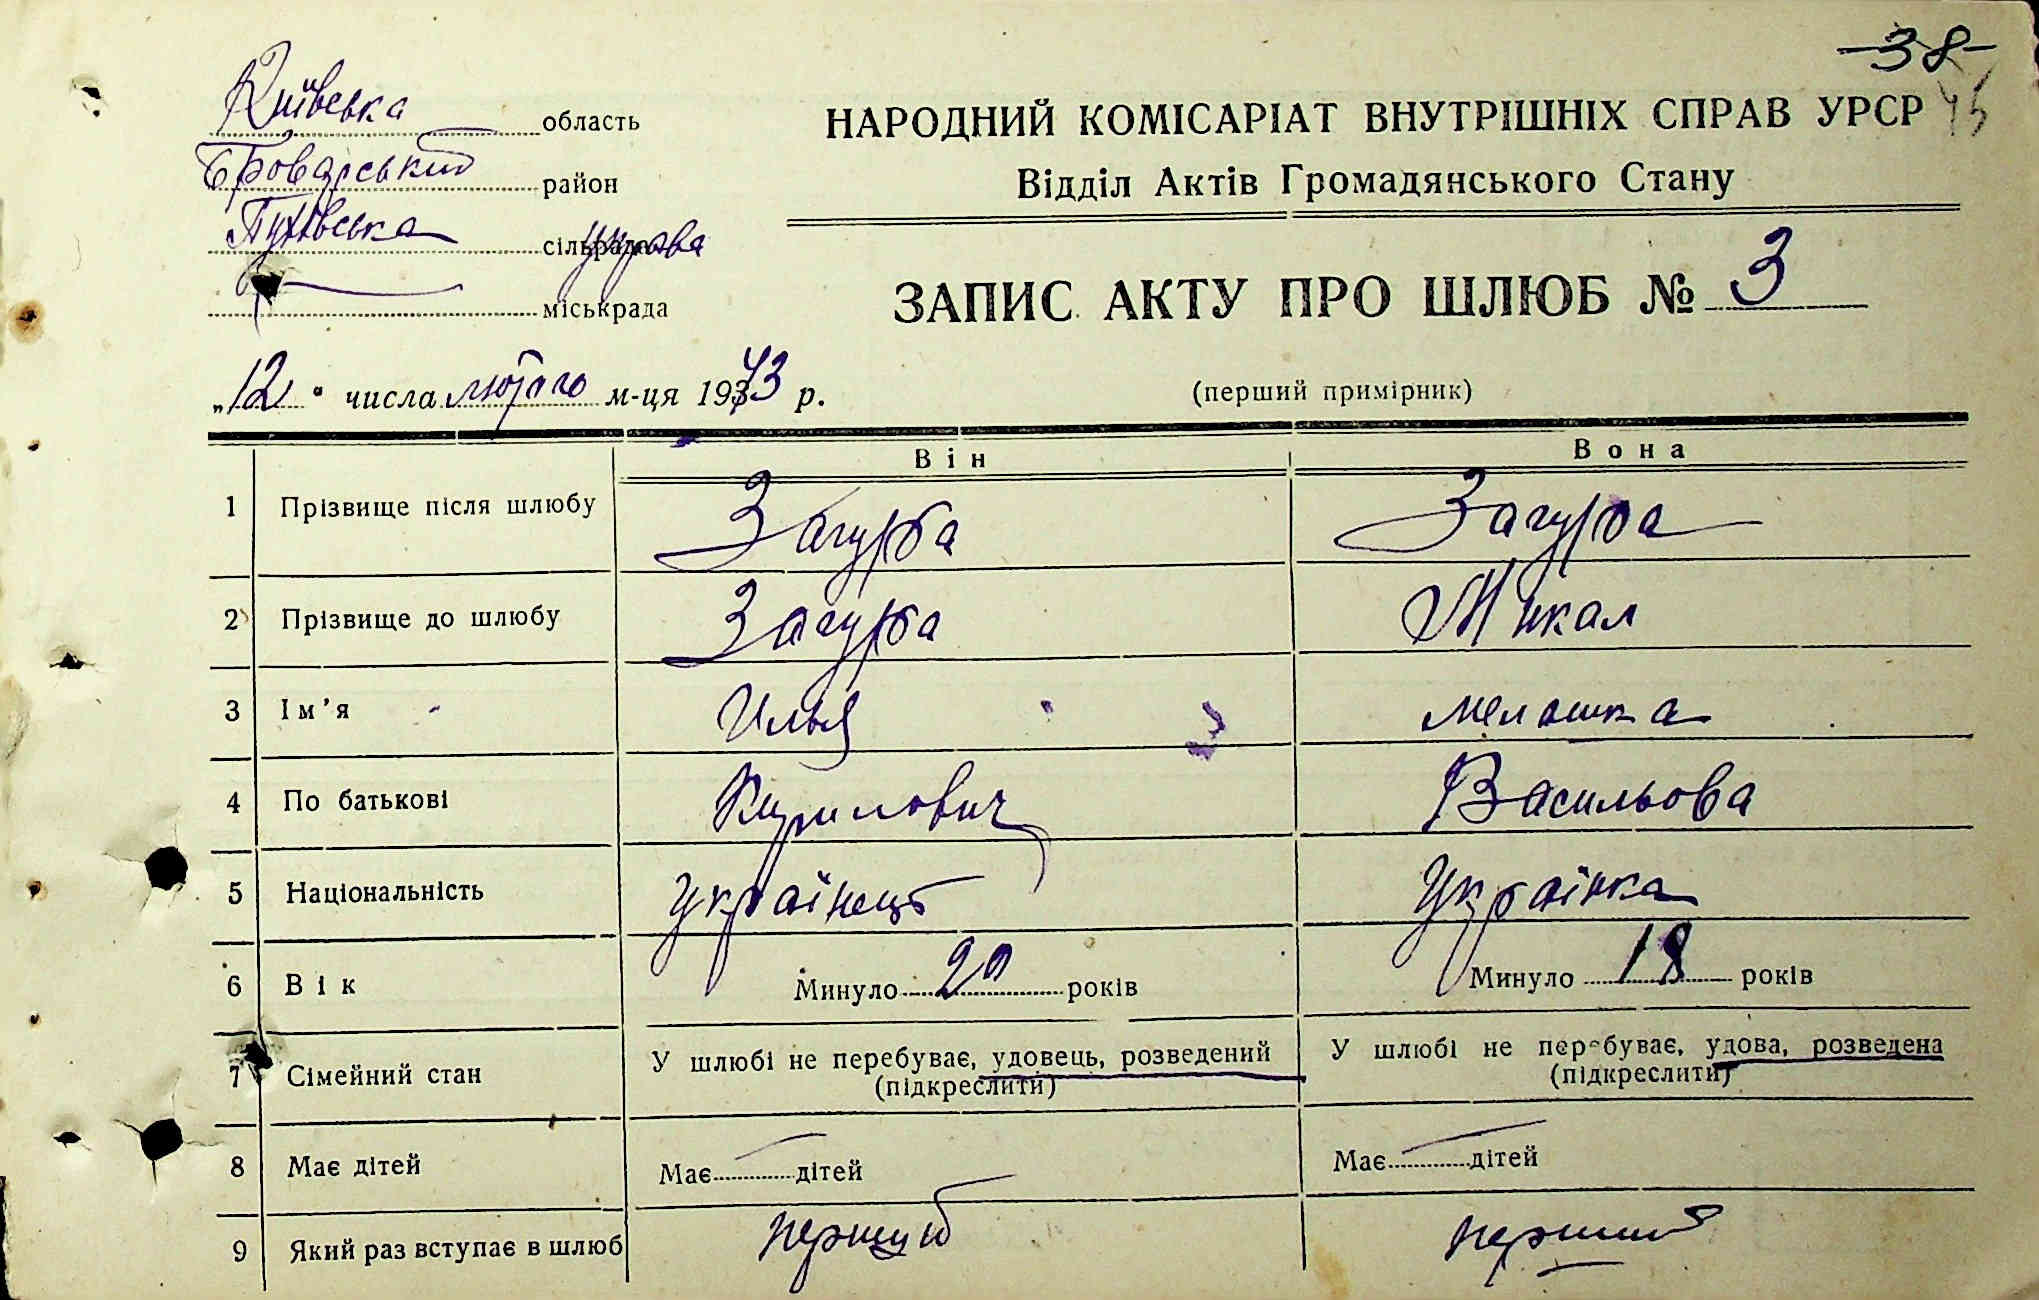 -38-
45
Київська область
Броварський район
Пухівська сільрада управа
міськрада
НАРОДНИЙ КОМІСАРІАТ ВНУТРІШНІХ СПРАВ УРСР
Відділ Актів Громадянського Стану
ЗАПИС АКТУ ПРО ШЛЮБ № 3
„12" числа лютого м-ця 1943 р.
(перший примірник)
Він Вона
1 Прізвище після шлюбу Загурба Загурба
2 Прізвище до шлюбу Загурба Микал
3 Ім'я Илья мелашка
4 По батькові Кирилович Васильова
5 Національність українець Українка
6 Вік Минуло 20 років Минуло 18 років
7 Сімейний стан У шлюбі не перебуває, удовець, розведений (підкреслити) У шлюбі не перебуває, удова, розведена (підкреслити)
8 Має дітей Має дітей Має дітей
9 Який раз вступає в шлюб перший перший